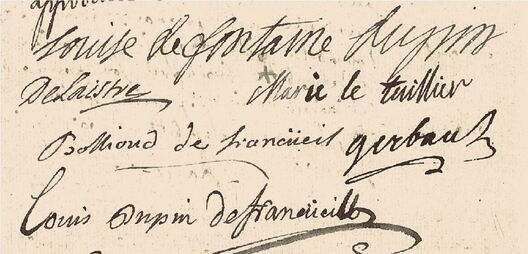 Louise de fontaine dupin
Delaistre Marie le tuillier
Bollioud de francüeil gerbault
Louis Dupin defrancüeill